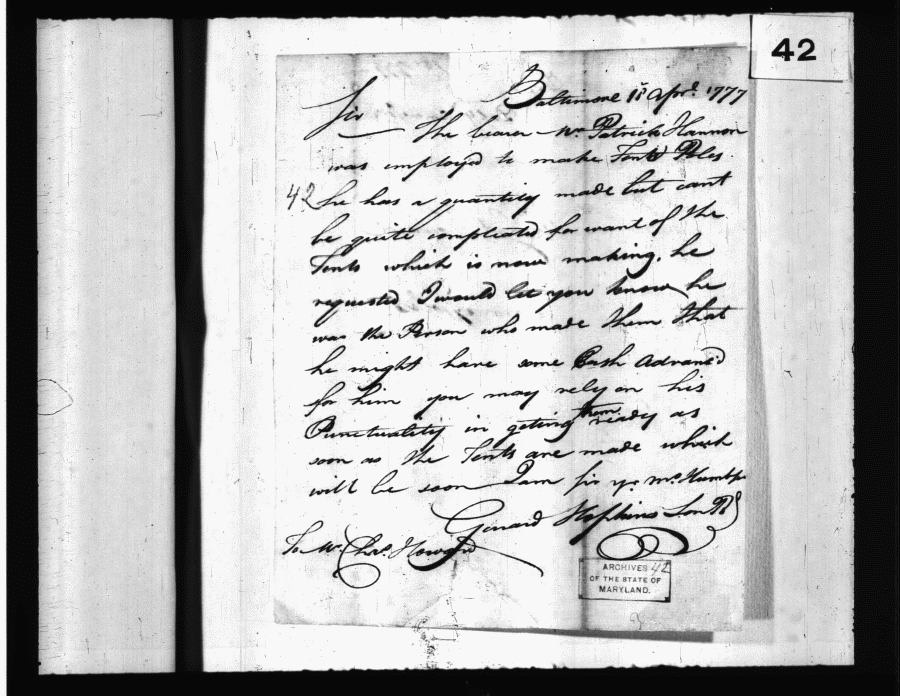 42
Baltimore 1st Aprl. 1777
Sir
The bearer Mr. Patrick Hannon
was employd to make Tent Poles
42 he has a quantity made but cant
be quite compleated for want of the
Tents which is now making, he
requested I would let you know he
was the Person who made them that
he might have some Cash Advanc'd
for him you may rely on his
Punctuality in geting them ready as
soon as the Tents are made which
will be soon I am sir yr. mo. Humble
Gerrard Hopkins Son
To Mr. Chas. Howard
ARCHIVES 42
OF THE STATE OF
MARYLAND.